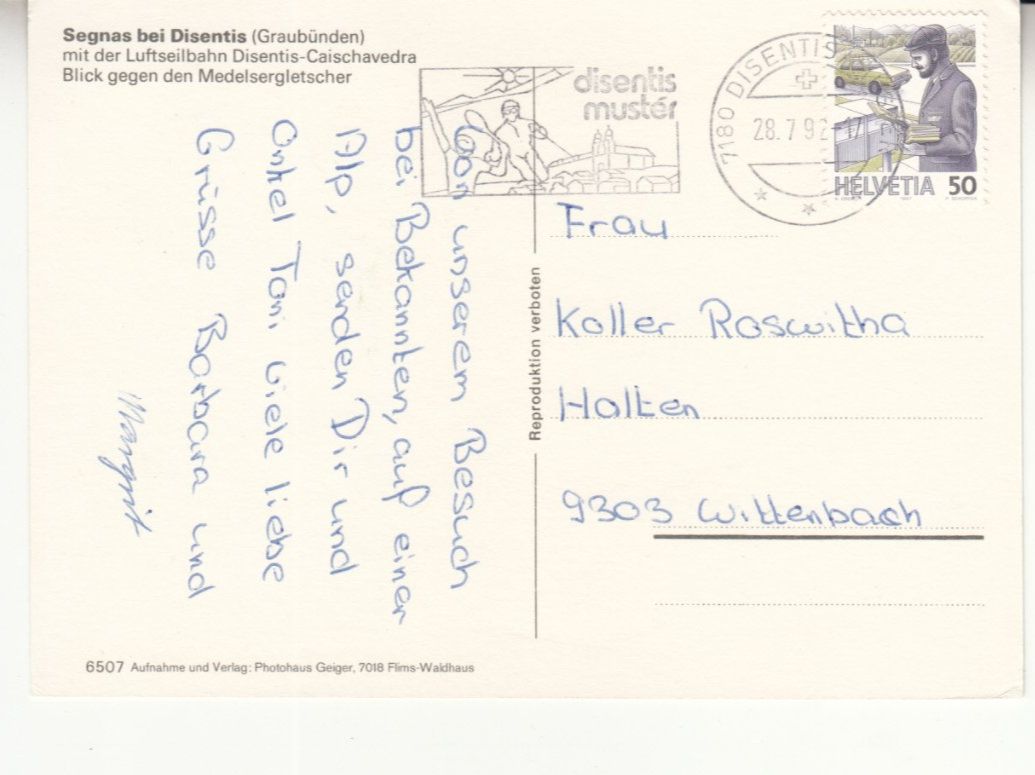 Segnas bei Disentis (Graubünden)
mit der Luftseilbahn Disentis-Caischavedra
Blick gegen den Medelsergletscher
disentis
mustér
7180 DISENTIS
28.7.92
HELVETIA 50
Von unserem Besuch
bei Bekannten, auf einer
Alp, senden Dir und
Onkel Toni viele liebe
Grüsse Barbara und
Margrit
Reproduktion verboten
Frau
Koller Roswitha
Halten
9303 Wittenbach
6507 Aufnahme und Verlag: Photohaus Geiger, 7018 Flims-Waldhaus